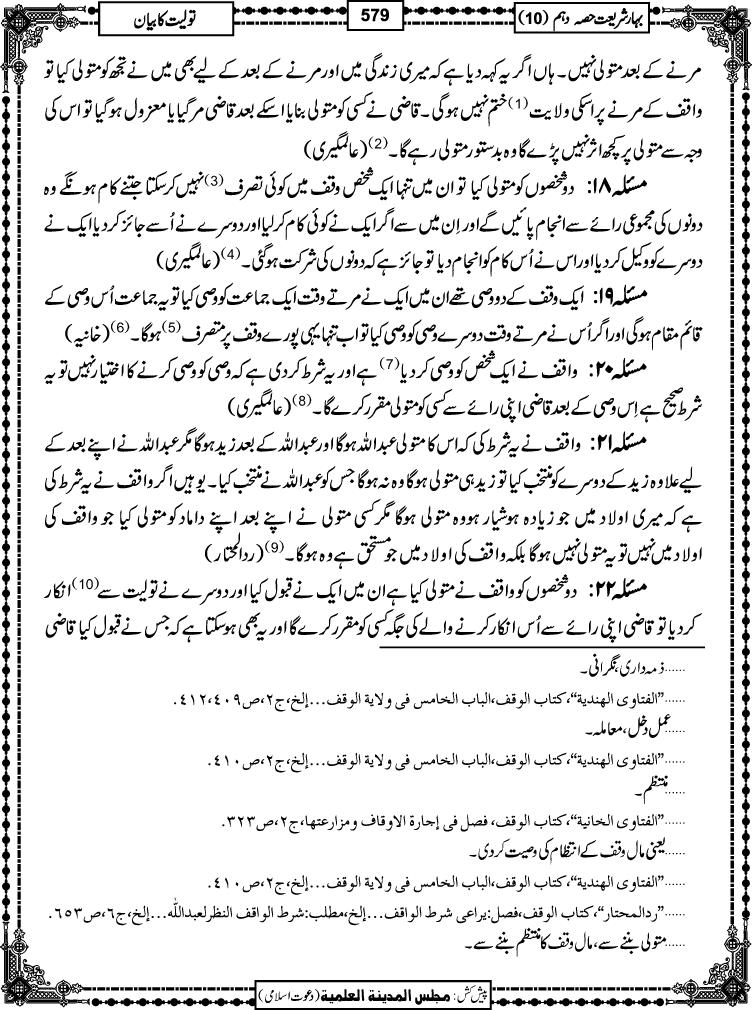 بہار شریعت حصہ دہم (10)
579
تولیت کا بیان
مرنے کے بعد متولی نہیں۔ ہاں اگر یہ کہہ دیا ہے کہ میری زندگی میں اور مرنے کے بعد کے لیے بھی میں نے تجھ کو متولی کیا تو
واقف کے مرنے پر اسکی ولایت (1) ختم نہیں ہوگی۔ قاضی نے کسی کو متولی بنایا اسکے بعد قاضی مرگیا یا معزول ہوگیا تو اس کی
وجہ سے متولی پر کچھ اثر نہیں پڑے گا وہ بدستور متولی رہے گا۔ (2) (عالمگیری)
مسئلہ ۱۸: دو شخصوں کو متولی کیا تو ان میں تنہا ایک شخص وقف میں کوئی تصرف (3) نہیں کرسکتا جتنے کام ہونگے وہ
دونوں کی مجموعی رائے سے انجام پائیں گے اور اِن میں سے اگر ایک نے کوئی کام کرلیا اور دوسرے نے اُسے جائز کردیا یا ایک نے
دوسرے کو وکیل کردیا اور اس نے اُس کام کو انجام دیا تو جائز ہے کہ دونوں کی شرکت ہوگئی۔ (4) (عالمگیری)
مسئلہ ۱۹: ایک وقف کے دو وصی تھے ان میں ایک نے مرتے وقت ایک جماعت کو وصی کیا تو یہ جماعت اُس وصی کے
قائم مقام ہوگی اور اگر اُس نے مرتے وقت دوسرے وصی کو وصی کیا تو اب تنہا یہی پورے وقف پر متصرف (5) ہوگا۔ (6) (خانیہ)
مسئلہ ۲۰: واقف نے ایک شخص کو وصی کردیا (7) ہے اور یہ شرط کردی ہے کہ وصی کو وصی کرنے کا اختیار نہیں تو یہ
شرط صحیح ہے اِس وصی کے بعد قاضی اپنی رائے سے کسی کو متولی مقرر کرے گا۔ (8) (عالمگیری)
مسئلہ ۲۱: واقف نے یہ شرط کی کہ اس کا متولی عبداللہ ہوگا اور عبداللہ کے بعد زید ہوگا مگر عبداللہ نے اپنے بعد کے
لیے علاوہ زید کے دوسرے کو منتخب کیا تو زید ہی متولی ہوگا وہ نہ ہوگا جس کو عبداللہ نے منتخب کیا۔ یوہیں اگر واقف نے یہ شرط کی
ہے کہ میری اولاد میں جو زیادہ ہوشیار ہو وہ متولی ہوگا مگر کسی متولی نے اپنے بعد اپنے داماد کو متولی کیا جو واقف کی
اولاد میں نہیں تو یہ متولی نہیں ہوگا بلکہ واقف کی اولاد میں جو مستحق ہے وہ ہوگا۔ (9) (ردالمحتار)
مسئلہ ۲۲: دو شخصوں کو واقف نے متولی کیا ہے ان میں ایک نے قبول کیا اور دوسرے نے تولیت سے (10) انکار
کردیا تو قاضی اپنی رائے سے اُس انکار کرنے والے کی جگہ کسی کو مقرر کرے گا اور یہ بھی ہوسکتا ہے کہ جس نے قبول کیا قاضی
......ذمہ داری، نگرانی۔
......"الفتاوی الهندية"، كتاب الوقف، الباب الخامس فی ولاية الوقف...إلخ، ج٢، ص٤٠٩، ٤١٢.
......عمل دخل، معاملہ۔
......"الفتاوی الهندية"، كتاب الوقف، الباب الخامس فی ولاية الوقف...إلخ، ج٢، ص٤١٠.
......منتظم۔
......"الفتاوی الخانية"، كتاب الوقف، فصل فی إجارة الاوقاف ومزارعتها، ج٢، ص٣٢٣.
......یعنی مال وقف کے انتظام کی وصیت کردی۔
......"الفتاوی الهندية"، كتاب الوقف، الباب الخامس فی ولاية الوقف...إلخ، ج٢، ص٤١٠.
......"ردالمحتار"، كتاب الوقف، فصل: يراعی شرط الواقف...إلخ، مطلب: شرط الواقف النظر لعبدالله...إلخ، ج٦، ص٦٥٣.
......متولی بننے سے، مال وقف کا منتظم بننے سے۔
پیش کش: مجلس المدینة العلمية (دعوت اسلامی)